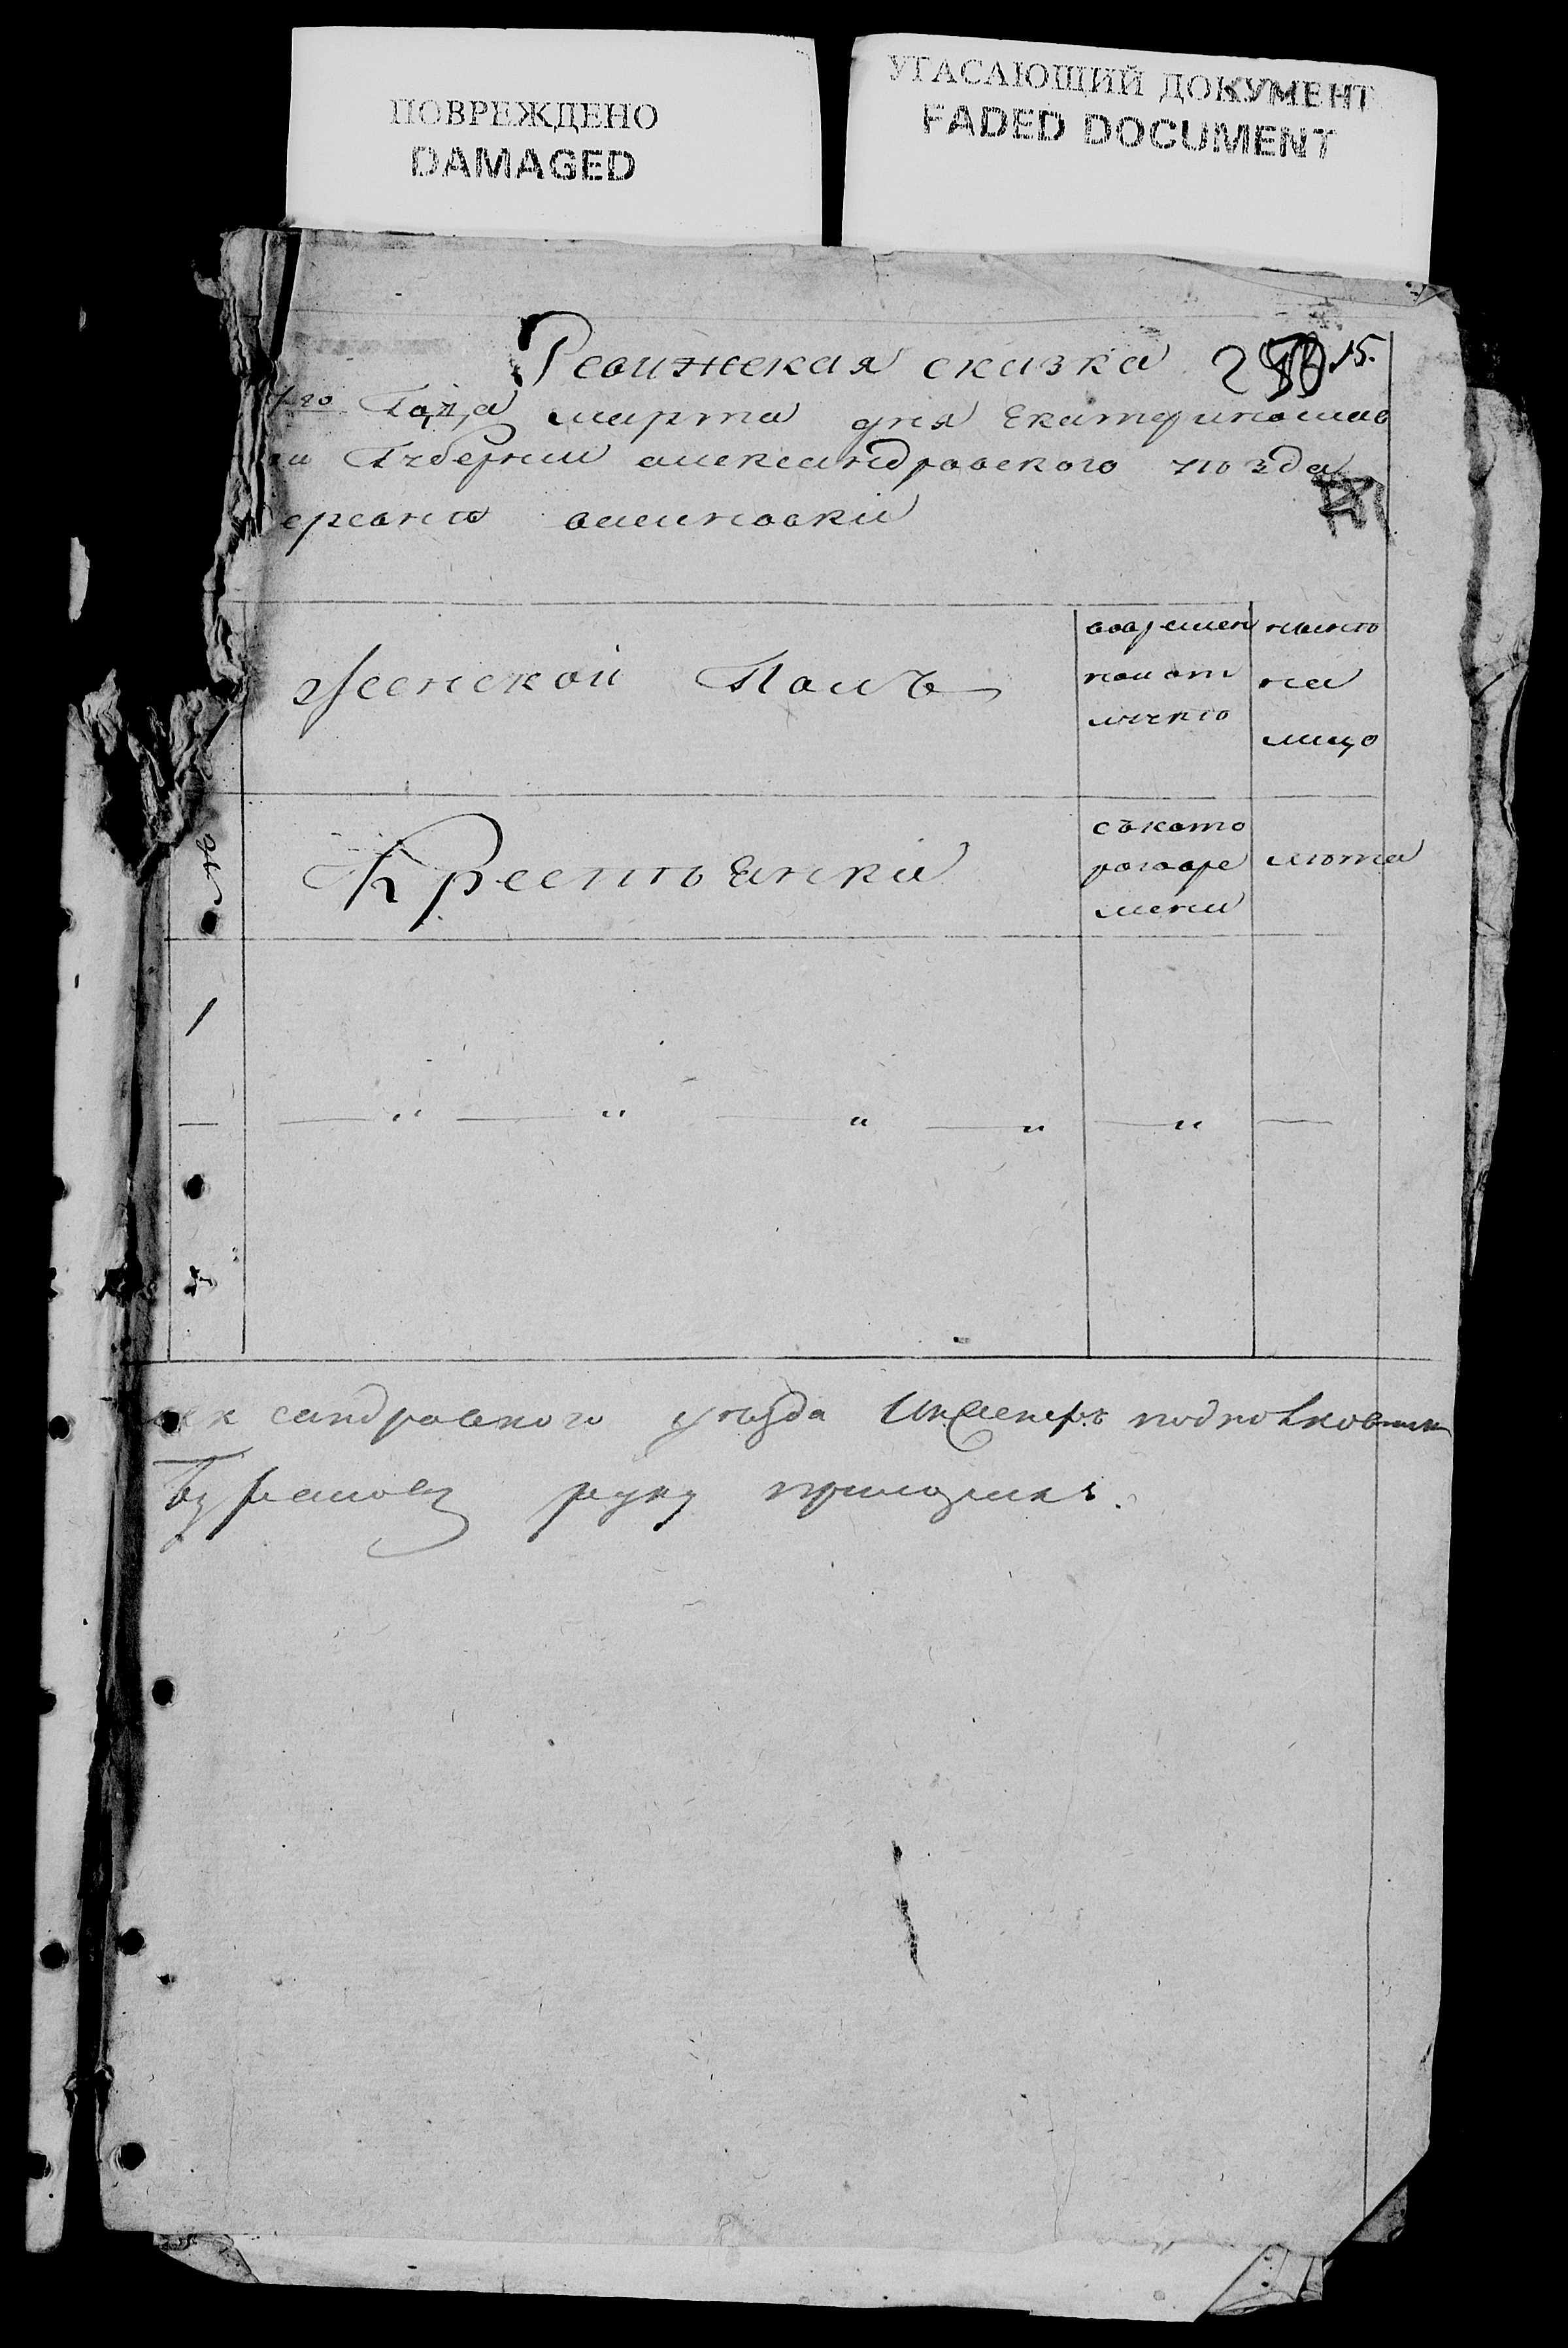 ПОВРЕЖДЕНО
DAMAGED
УГАСАЮЩИЙ ДОКУМЕНТ
FADED DOCUMENT
Ревижская сказка
15.
7го Года марта дня Екатеринослав
ки Губерний александровского уѣзда
еревнѣ
женской Полъ
вовремен
ной от
лучкѣ
нынѣ
на
лицо
№
Крестьянки
съкото
рогоаре
мени
лѣта
1
— " — " — " — " — " —
лександровского уѣзда Инженеръ подполковник
руку приложилъ.